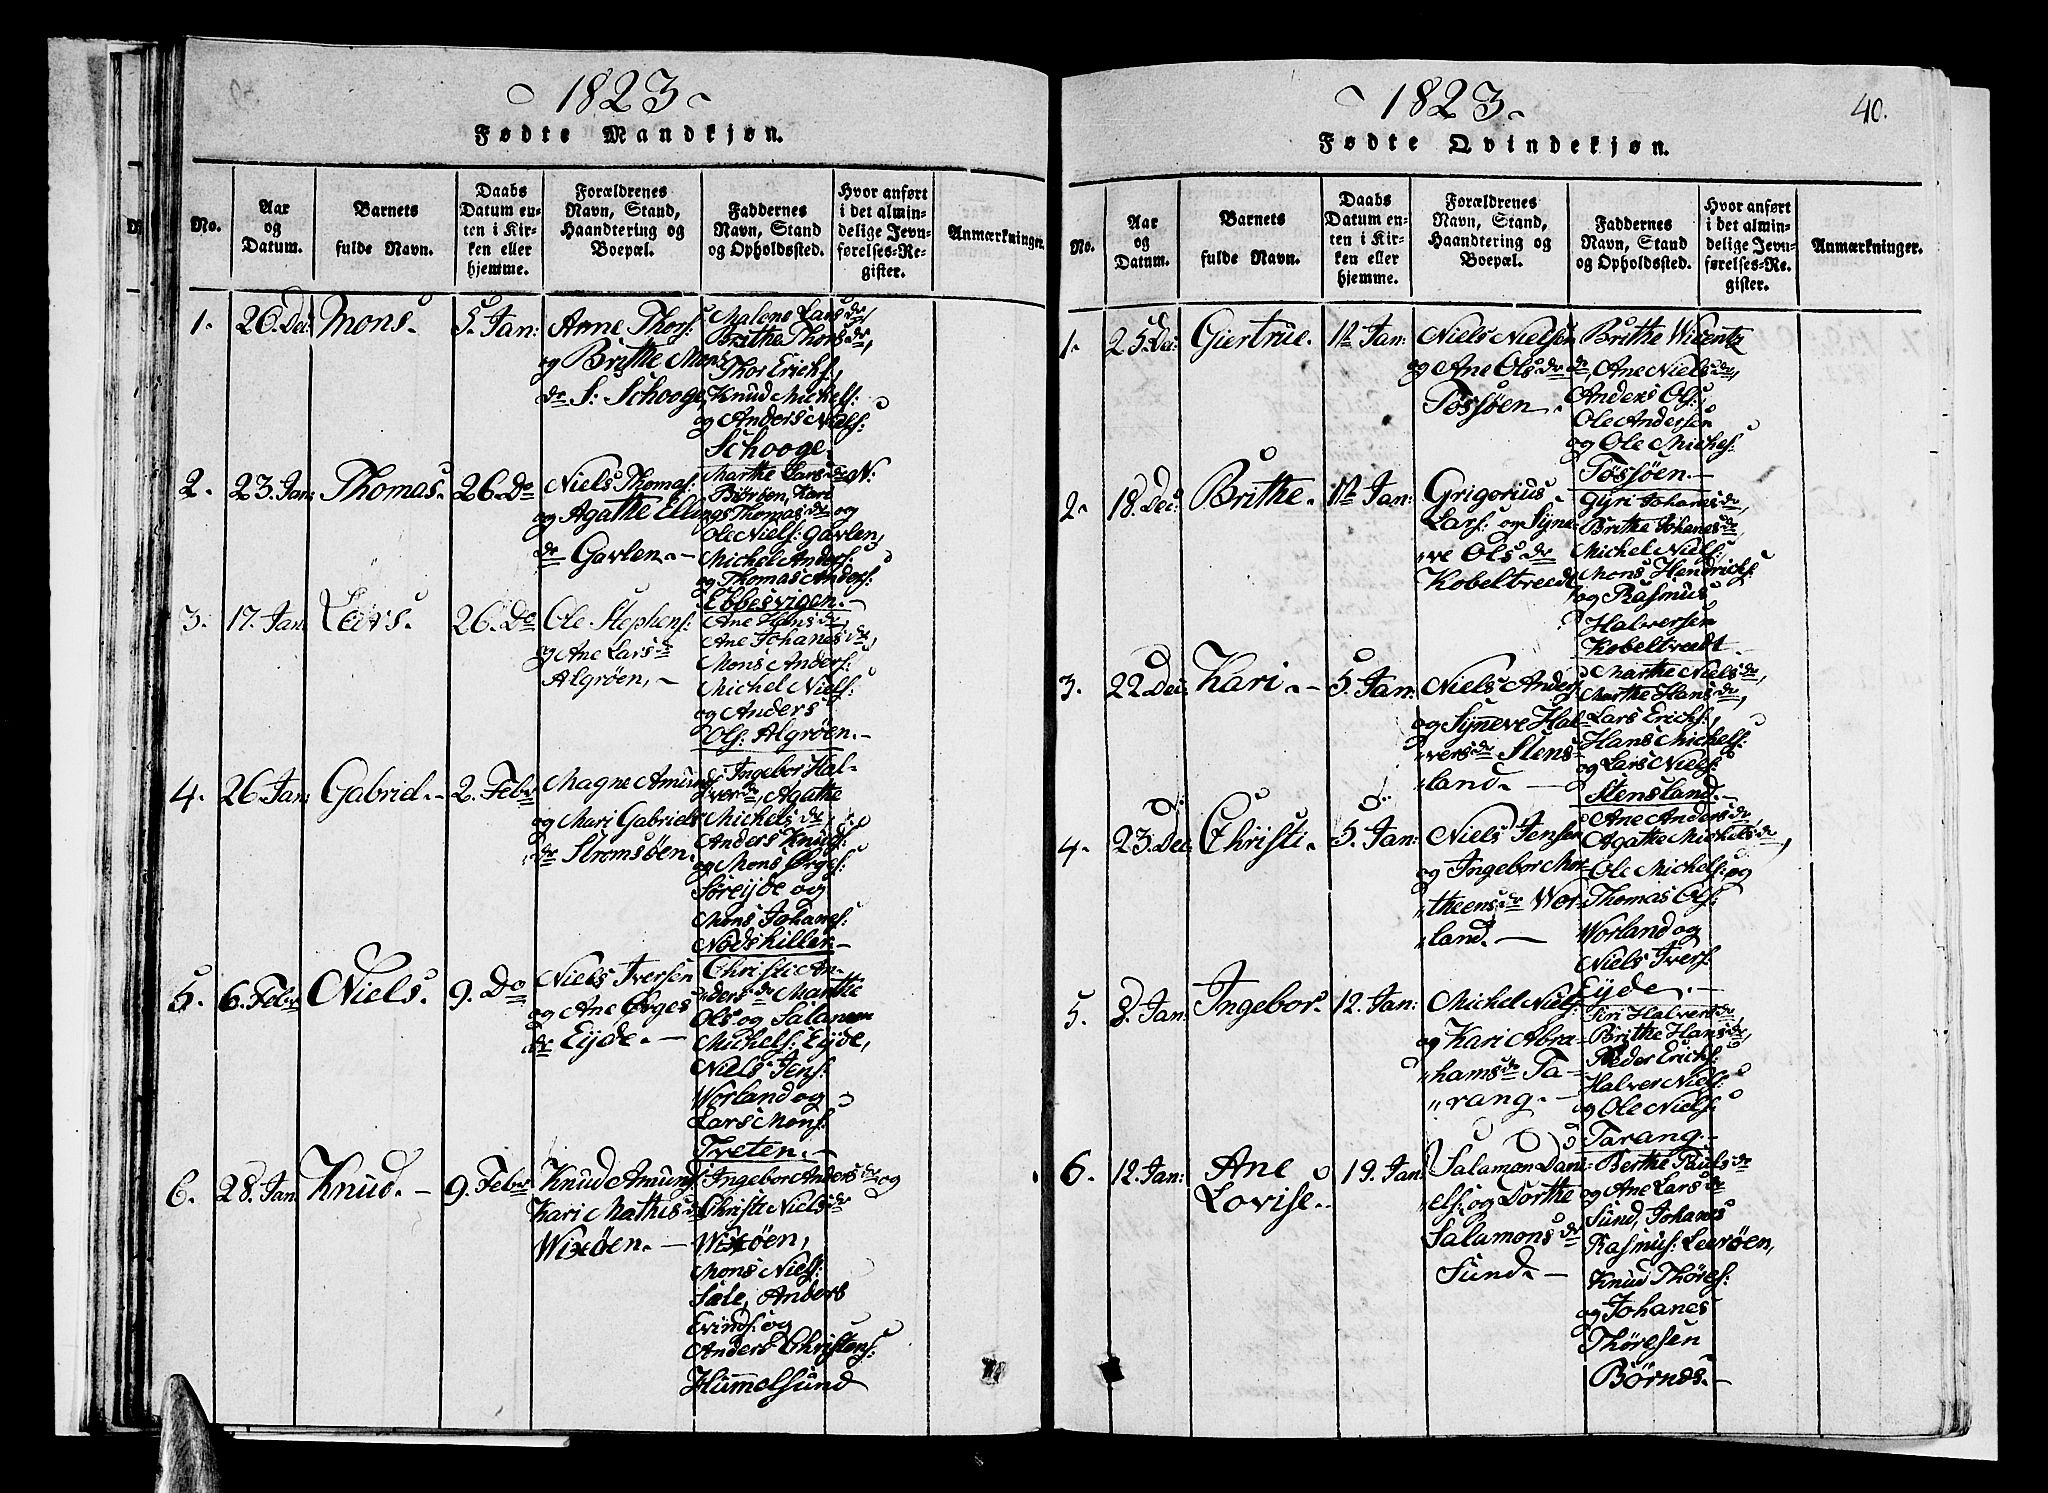 1823
Fødte Mandkjøn.
No.
Aar
og
Datum.
Barnets
fulde Navn.
Daabs
Datum en-
ten i Kir-
ken eller
hjemme.
Forældrenes
Navn, Stand,
Haandtering og
Boepæl.
Faddernes
Navn, Stand
og Opholdssted.
Hvor anført
i det almin-
delige Jevn-
førelses-Re-
gister.
Anmærkninger.
1. 26. Dec: Mons. 5. Jan:
Arne Thors:
og Brithe Mons
dr S: Schooge,
Malene Lars dr,
Brithe Thors dr,
Thor Erichs:,
Knud Michels:
og Anders Niels:
Schooge.
2. 23. Jan: Thomas. 26. Do
Niels Thomas:
og Agathe Ellings
dr Gavlen. -
Marthe Lars dr N:
Børøen, Kari
Thomas dr og
Ole Niels: Gavlen,
Michel Anders:
og Thomas Anders:
Ebbesvigen. -
3. 17. Jan: Lars. 26. Do
Ole Stephens:
og Ane Lars dr
Algrøen, -
Ane Hans dr,
Ane Johanes dr,
Mons Anders:
Michel Niels:
og Anders
Ols: Algrøen. -
4. 26. Jan: Gabriel. - 2. Febr
Magne Amunds:
og Mari Gabriels
dr Strømsøen.
Ingebor Hal-
vers dr, Agathe
Michels dr
Anders Knuds:
og Mons Ørges:
Søreijde og
Mons Johanes:
Nødskiller. -
5. 6. Febr Niels. 9. Do
Niels Iversen
og Ane Ørges
dr Eijde. -
Christi An-
ders dr Marthe
Ols: og Salamon
Michels: Eijde,
Niels Jens:
Worland og
Lars Mons:
Tveten. -
6. 28. Jan: Knud. - 9. Febr
Knud Amunds:
Kari Mathis dr
Wixøen. -
Ingebor Anders dr og
Christi Niels dr
Wixøen,
Mons Niels:
Sæle, Anders
Evinds: og
Anders Christens:
Hummelsund
1823.
40.
Fødte Qvindekjøn.
No.
Aar
og
Datum.
Barnets
fulde Navn.
Daabs
Datum en-
ten i Kir-
ken eller
hjemme.
Forældrenes
Navn, Stand,
Haandtering og
Boepæl.
Faddernes
Navn, Stand
og Opholdssted.
Hvor anført
i det almin-
delige Jevn-
førelses-Re-
gister.
Anmærkninger.
1. 25. Dec: Giertrue. 1te Jan:
Niels Nielsen
og Ane Ols dr
Tøssøen.
Brithe Wicentz
dr, Ane Niels dr,
Anders Ols:
Ole Andersen
og Ole Michels:
Tøssøen. -
2. 18. Dec: Brithe. 1te Jan:
Grigorius
Lars: og Syne-
ve Ols dr
Kobeltvedt
Gyri Johanes dr,
Brithe Johanes dr
Michel Niels:
Mons Hendrichs:
og Rasmus
Halversen
Kobeltvedt.
3. 22. Dec: Kari. - 5. Jan:
Niels Anders:
og Syneve Hal-
vers dr Stens-
land. -
Marthe Niels dr,
Marthe Hans dr,
Lars Erichs:,
Hans Michels:
og Lars Niels:
Stensland. -
4. 23. Dec: Christi. 5. Jan:
Niels Jensen
og Ingebor Mor-
theens dr Wor-
land. -
Ane Anders dr,
Agathe Michels dr,
Ole Michels: og
Thomas Ols:
Worland og
Niels Ivers:
Eijde. -
5. 8. Jan: Ingebor. 12. Jan:
Michel Niels:
og Kari Abra-
hams dr Ta-
rang. -
Siri Halvers dr,
Brithe Hans dr,
Peder Erichs:
Halver Niels:
og Ole Niels:
Tarang. -
6. 12. Jan: Ane
Lovise. 19. Jan:
Salamon Dani-
els: og Dorthe
Salamons dr
Sund. -
Berthe Pauls dr
og Ane Lars dr
Sund, Johanes
Rasmus: Leerøen,
Knud Thøres:
og Johanes
Thøresen
Børnds. -